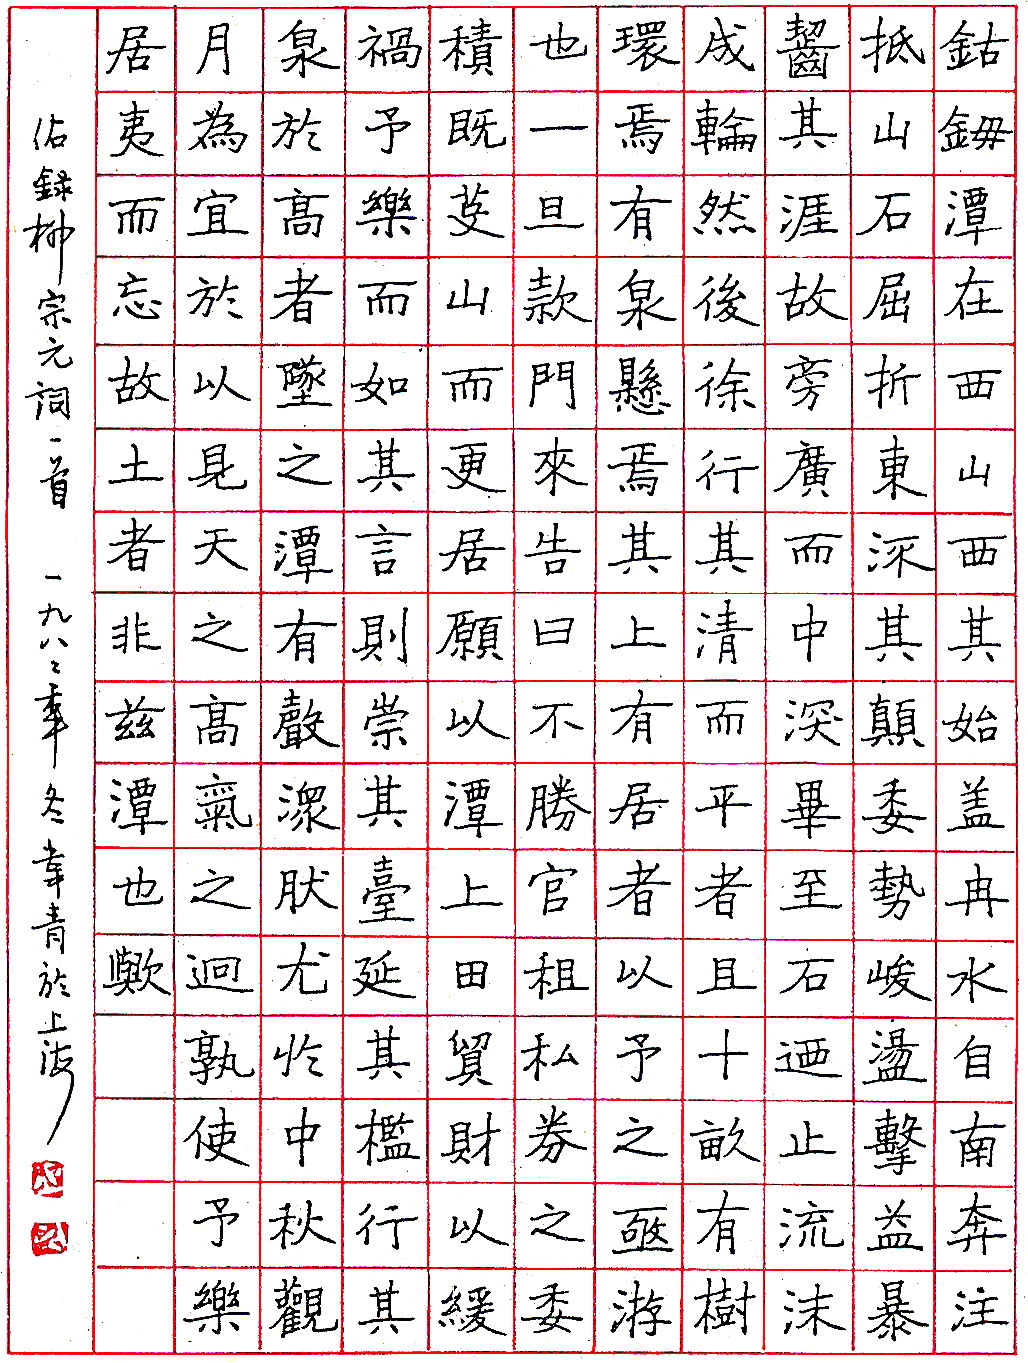 鈷鉧潭在西山西其始盖冉水自南奔注
抵山石屈折東流其顛委勢峻盪擊益暴
齧其涯故旁廣而中深畢至石廼止流沫
成輪然後徐行其清而平者且十畝有樹
環焉有泉懸焉其上有居者以予之亟游
也一旦款門來告曰不勝官租私券之委
積既芟山而更居願以潭上田貿財以緩
禍予樂而如其言則崇其臺延其檻行其
泉於髙者墜之潭有聲潀肰尤於中秋觀
月為宜於以見天之髙氣之迥孰使予樂
居夷而忘故土者非兹潭也歟
佑録柳宗元詞一首 一九八二年冬韋青於上海